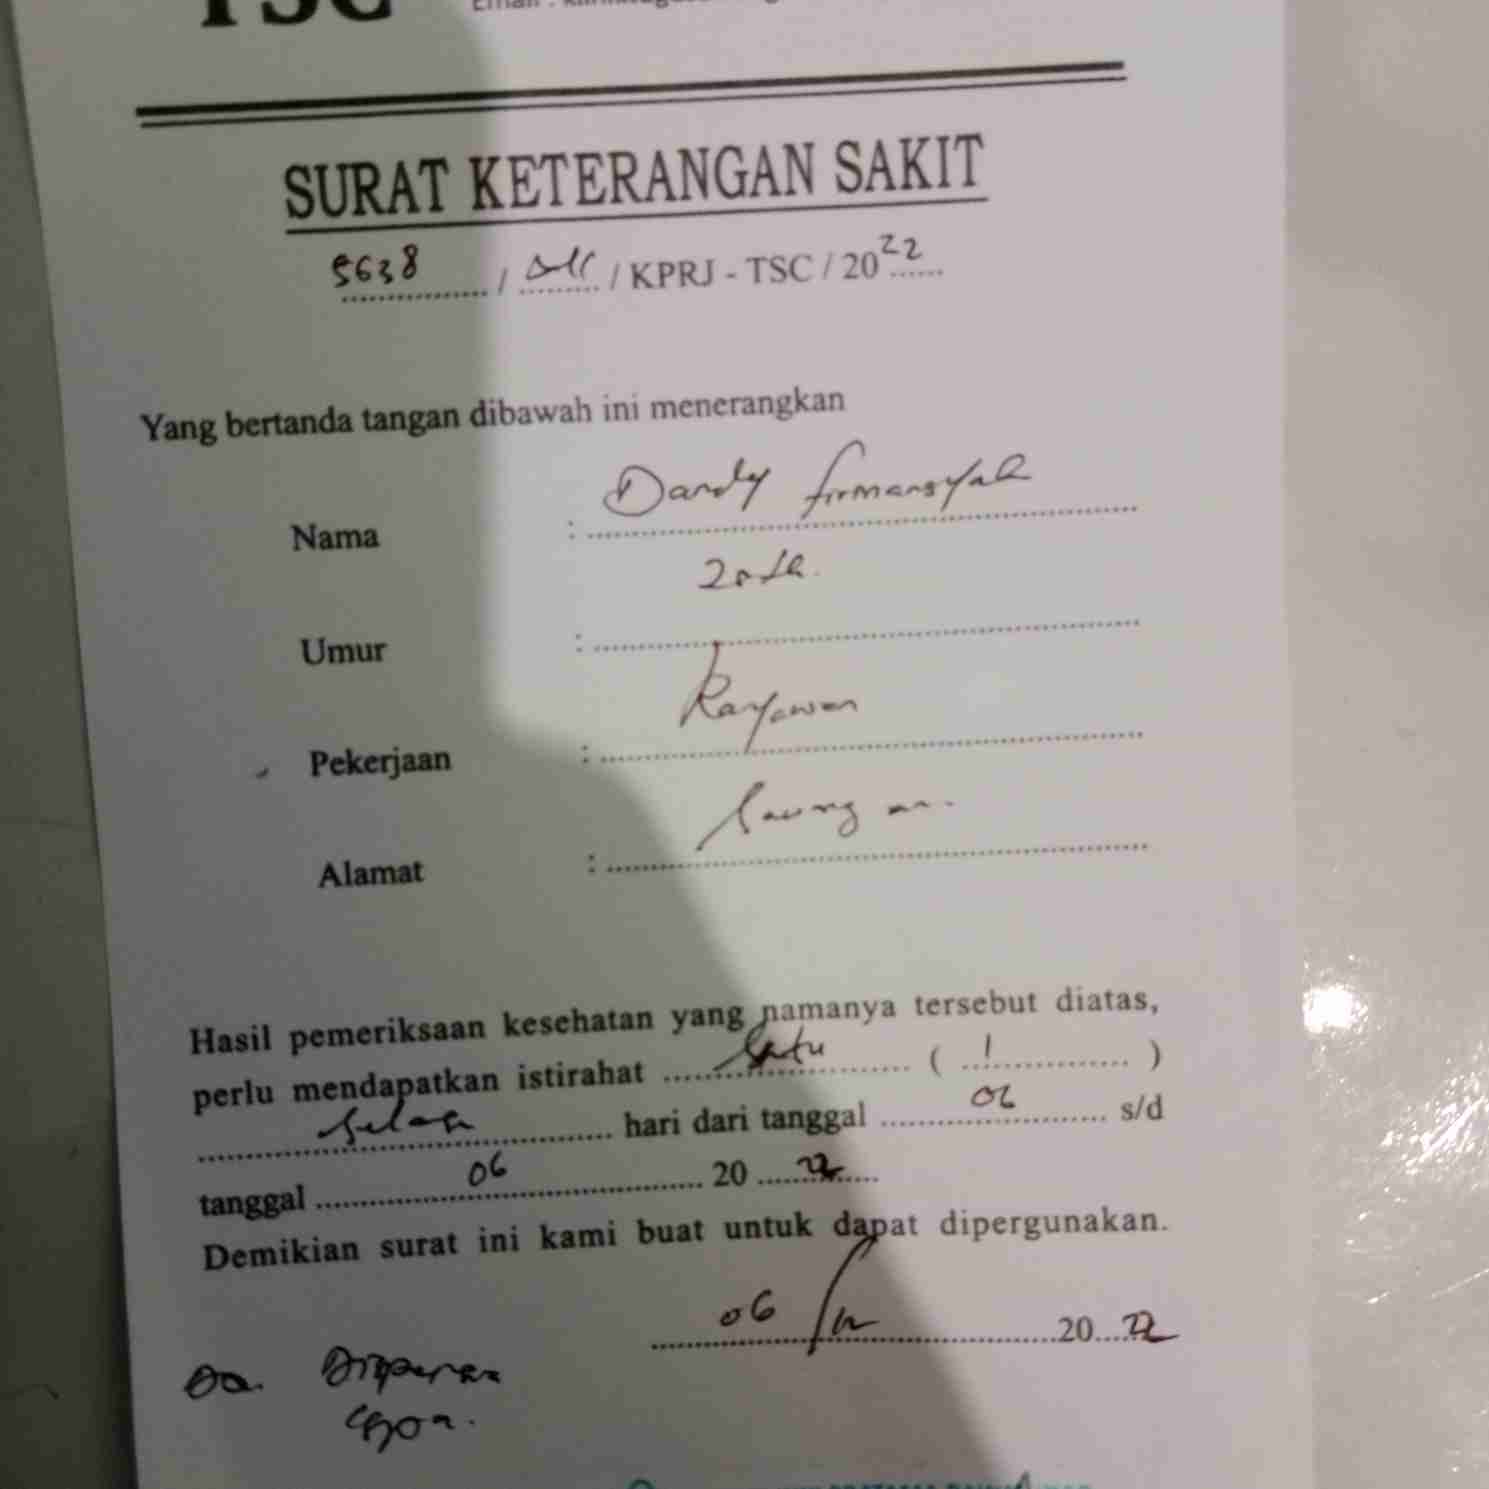 TSC
Email :
SURAT KETERANGAN SAKIT
5638 / / KPRJ - TSC / 2022
Yang bertanda tangan dibawah ini menerangkan
Nama : Dandy firmansyah
Umur : 20 th.
Pekerjaan : Karyawan
Alamat :
Hasil pemeriksaan kesehatan yang namanya tersebut diatas,
perlu mendapatkan istirahat satu ( 1 )
selasa hari dari tanggal 06 s/d
tanggal 06 20 22
Demikian surat ini kami buat untuk dapat dipergunakan.
06 / 12 20 22